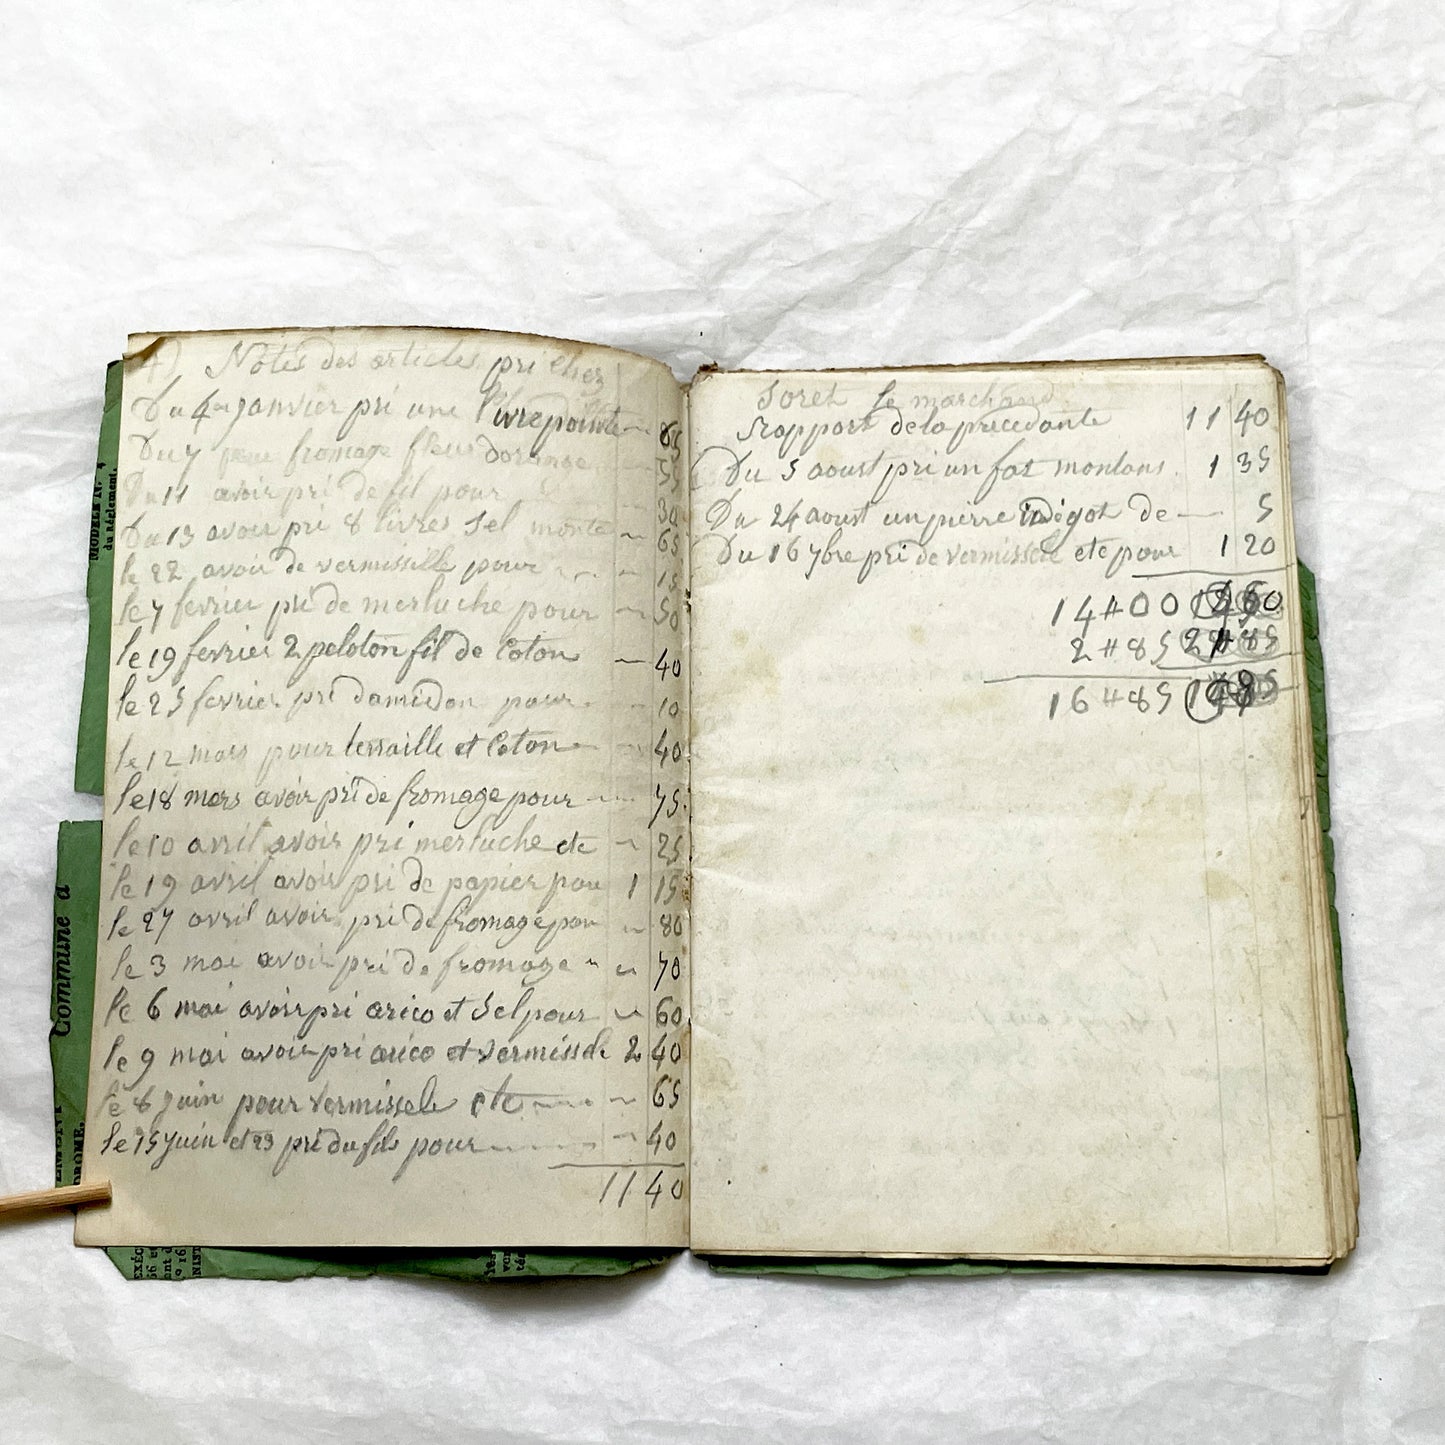 4) Notes des articles pri chez
Du 4 janvier pri une livre pointe 65
Du 7 pour fromage fleur dorange 55
Du 11 avoir pri de fil pour 30
Du 13 avoir pri 8 livres Sel monte 65
le 22 avoir de vermissille pour 15
le 7 fevrier pri de merluche pour 50
le 19 fevrier 2 peloton fil de Coton 40
le 25 fevrier pri damidon pour 10
le 12 mars pour terraille et Coton 40
le 18 mars avoir pri de fromage pour 75
le 10 avril avoir pri merluche etc 25
le 19 avril avoir pri de papier pour 1 15
le 27 avril avoir pri de fromage pour 80
le 3 mai avoir pri de fromage " 70
le 6 mai avoir pri arico et Sel pour 60
le 9 mai avoir pri arico et vermissele 2 40
le 8 juin pour vermissele etc 65
le 15 juin et 23 pri du fils pour 40
11 40
Soret le marchand
Rapport de la precedante 11 40
Du 5 aoust pri un fat montans 1 35
Du 24 aoust un pierre indigot de 5
Du 16 7bre pri de vermissele etc pour 1 20
14 # 00
2 # 85
16 # 85
MODÈLE N.
du règlement.
Commune d
DROME.